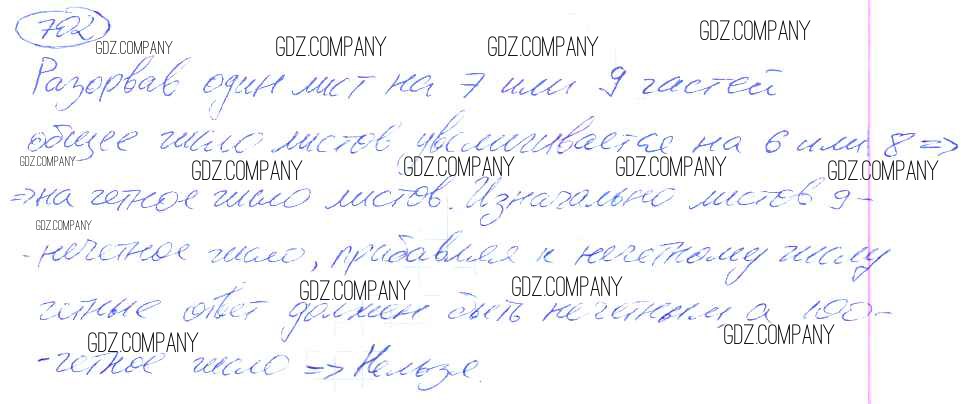 702
GDZ.COMPANY GDZ.COMPANY GDZ.COMPANY GDZ.COMPANY
Разорвав один лист на 7 или 9 частей
общее число листов увеличивается на 6 или 8 =>
GDZ.COMPANY GDZ.COMPANY GDZ.COMPANY GDZ.COMPANY GDZ.COMPANY
=> на четное число листов. Изначально листов 9-
GDZ.COMPANY
- нечетное число, прибавляя к нечетному числу
GDZ.COMPANY GDZ.COMPANY
четные ответ должен быть нечетным, а 100-
GDZ.COMPANY GDZ.COMPANY
-четное число => Нельзя.